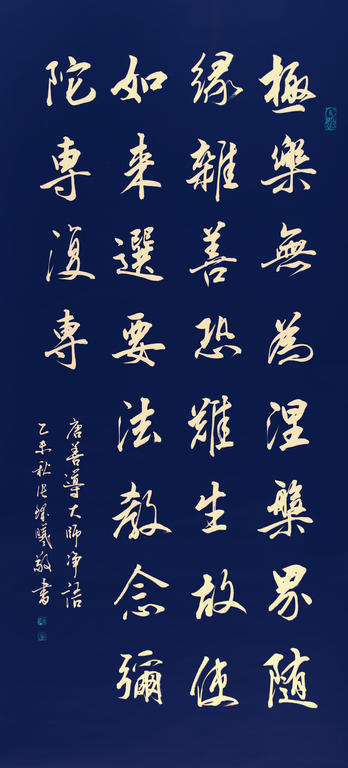 極樂無為涅槃界隨
緣雜善恐難生故使
如來選要法教念彌
陀專復專
唐善導大師净語
乙未秋曦敬書